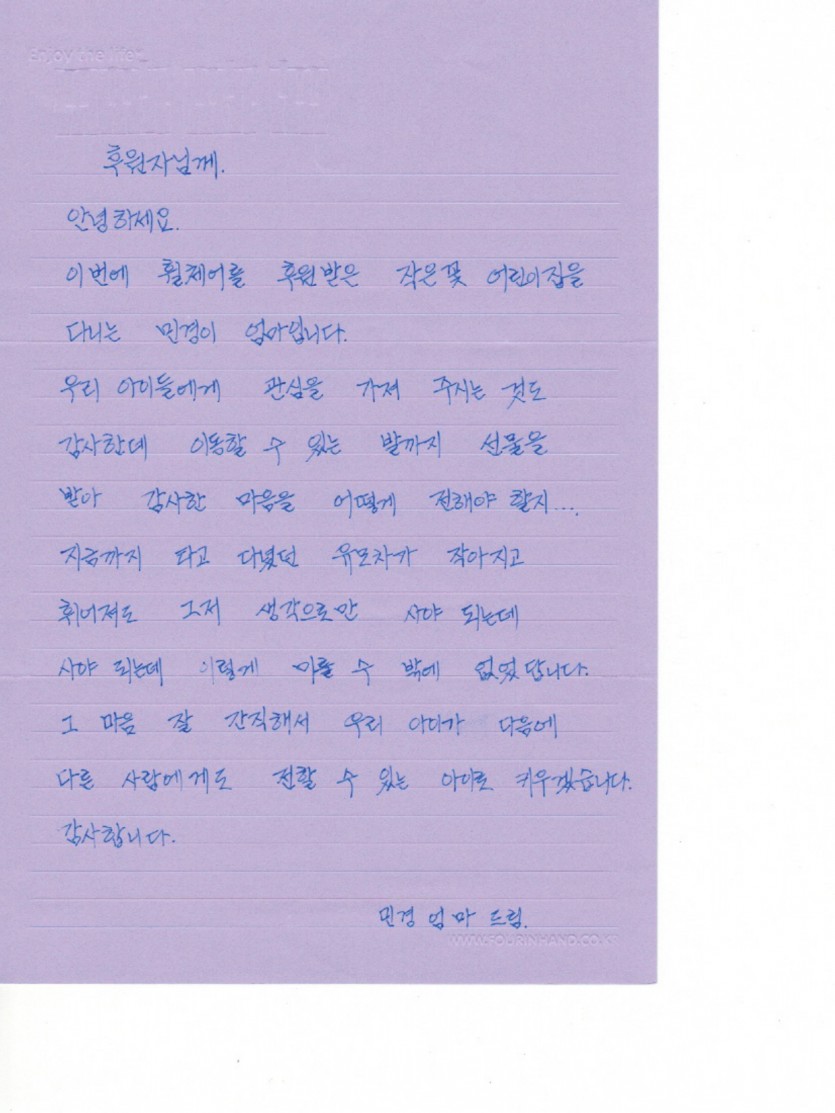 Enjoy the life
후원자님께.
안녕하세요.
이번에 휠체어를 후원받은 작은꽃 어린이집을
다니는 민경이 엄마입니다.
우리 아이들에게 관심을 가져 주시는 것도
감사한데 이동할 수 있는 발까지 선물을
받아 감사한 마음을 어떻게 전해야 할지...
지금까지 타고 다녔던 유모차가 작아지고
휘어져도 그저 생각으로만 사야 되는데
사야 되는데 이렇게 미룰 수 밖에 없었답니다.
그 마음 잘 간직해서 우리 아이가 다음에
다른 사람에게도 전할 수 있는 아이로 키우겠습니다.
감사합니다.
민경 엄마 드림.
WWW.FOURINHAND.CO.KR